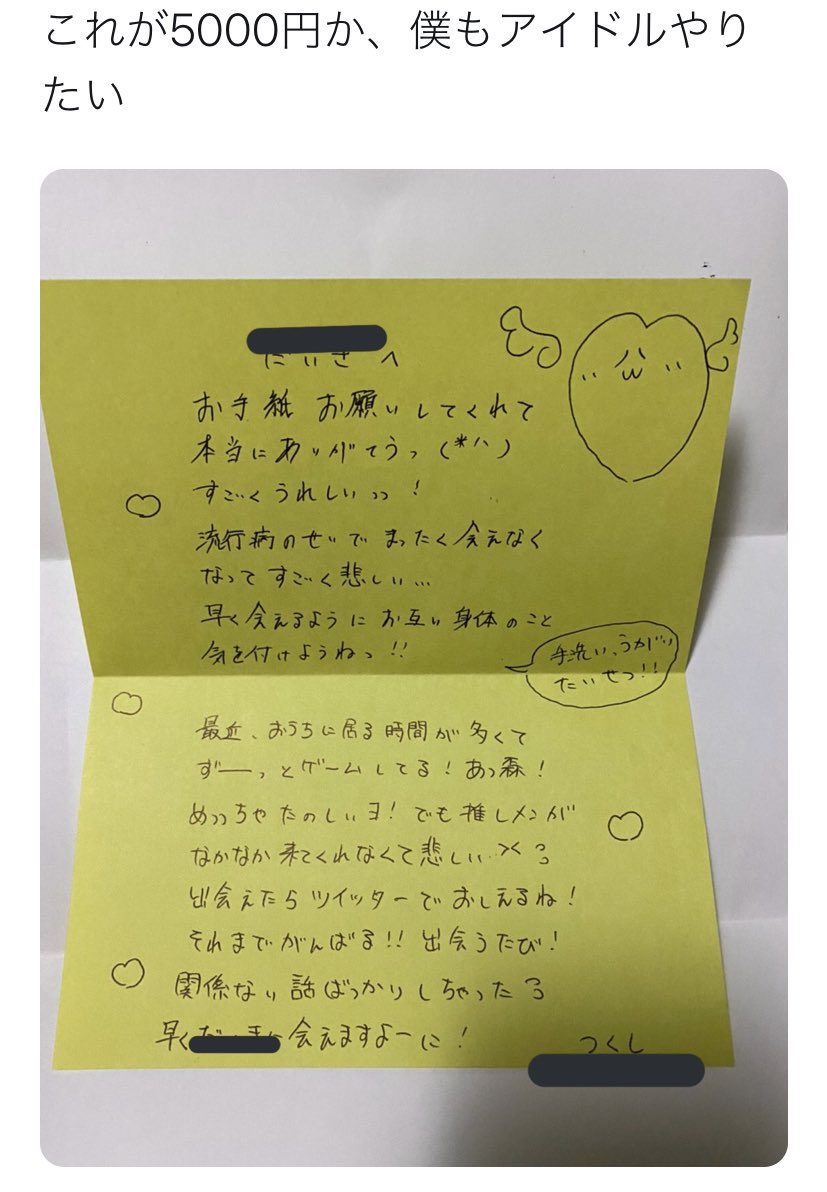 これが5000円か、僕もアイドルやり
たい
へ
お手紙 お願いしてくれて
本当にありがとうっ (*^^)
すごくうれしいっっ！
流行病のせいでまったく会えなく
なってすごく悲しい…
早く会えるようにお互い身体のこと
気を付けようねっ!!
手洗い、うがい
たいせつ!!
最近、おうちに居る時間が多くて
ずーっとゲームしてる！あつ森！
めっっちゃたのしいヨ！でも推しメンが
なかなか来てくれなくて悲しい
出会えたらツイッターでおしえるね！
それまでがんばる!! 出会うたび！
関係ない話ばっかりしちゃった
早く に会えますよーに！
つくし